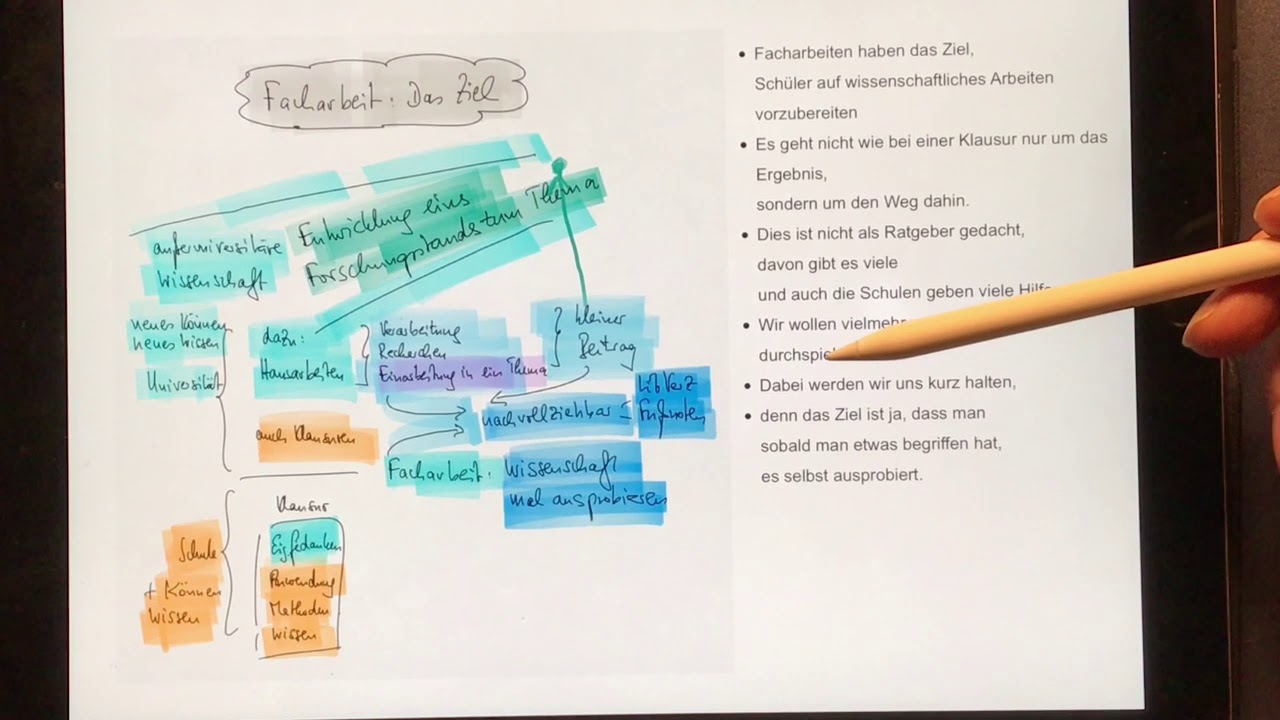 Facharbeit: Das Ziel
Entwicklung eines
Forschungsstands zum Thema
außeruniversitäre
Wissenschaft
neues Können
neues Wissen
Universität
dazu:
Hausarbeiten
Verarbeitung
Recherchen
Einarbeitung in ein Thema
kleiner
Beitrag
auch Klausuren
nachvollziehbar =
LitVerz
Fußnoten
Facharbeit:
Wissenschaft
mal ausprobieren
Klausur
Schule
+ Können
Wissen
Anwendung
Methoden
Wissen
• Facharbeiten haben das Ziel,
Schüler auf wissenschaftliches Arbeiten
vorzubereiten
• Es geht nicht wie bei einer Klausur nur um das
Ergebnis,
sondern um den Weg dahin.
• Dies ist nicht als Ratgeber gedacht,
davon gibt es viele
und auch die Schulen geben viele
• Wir wollen
• Dabei werden wir uns kurz halten,
• denn das Ziel ist ja, dass man
sobald man etwas begriffen hat,
es selbst ausprobiert.